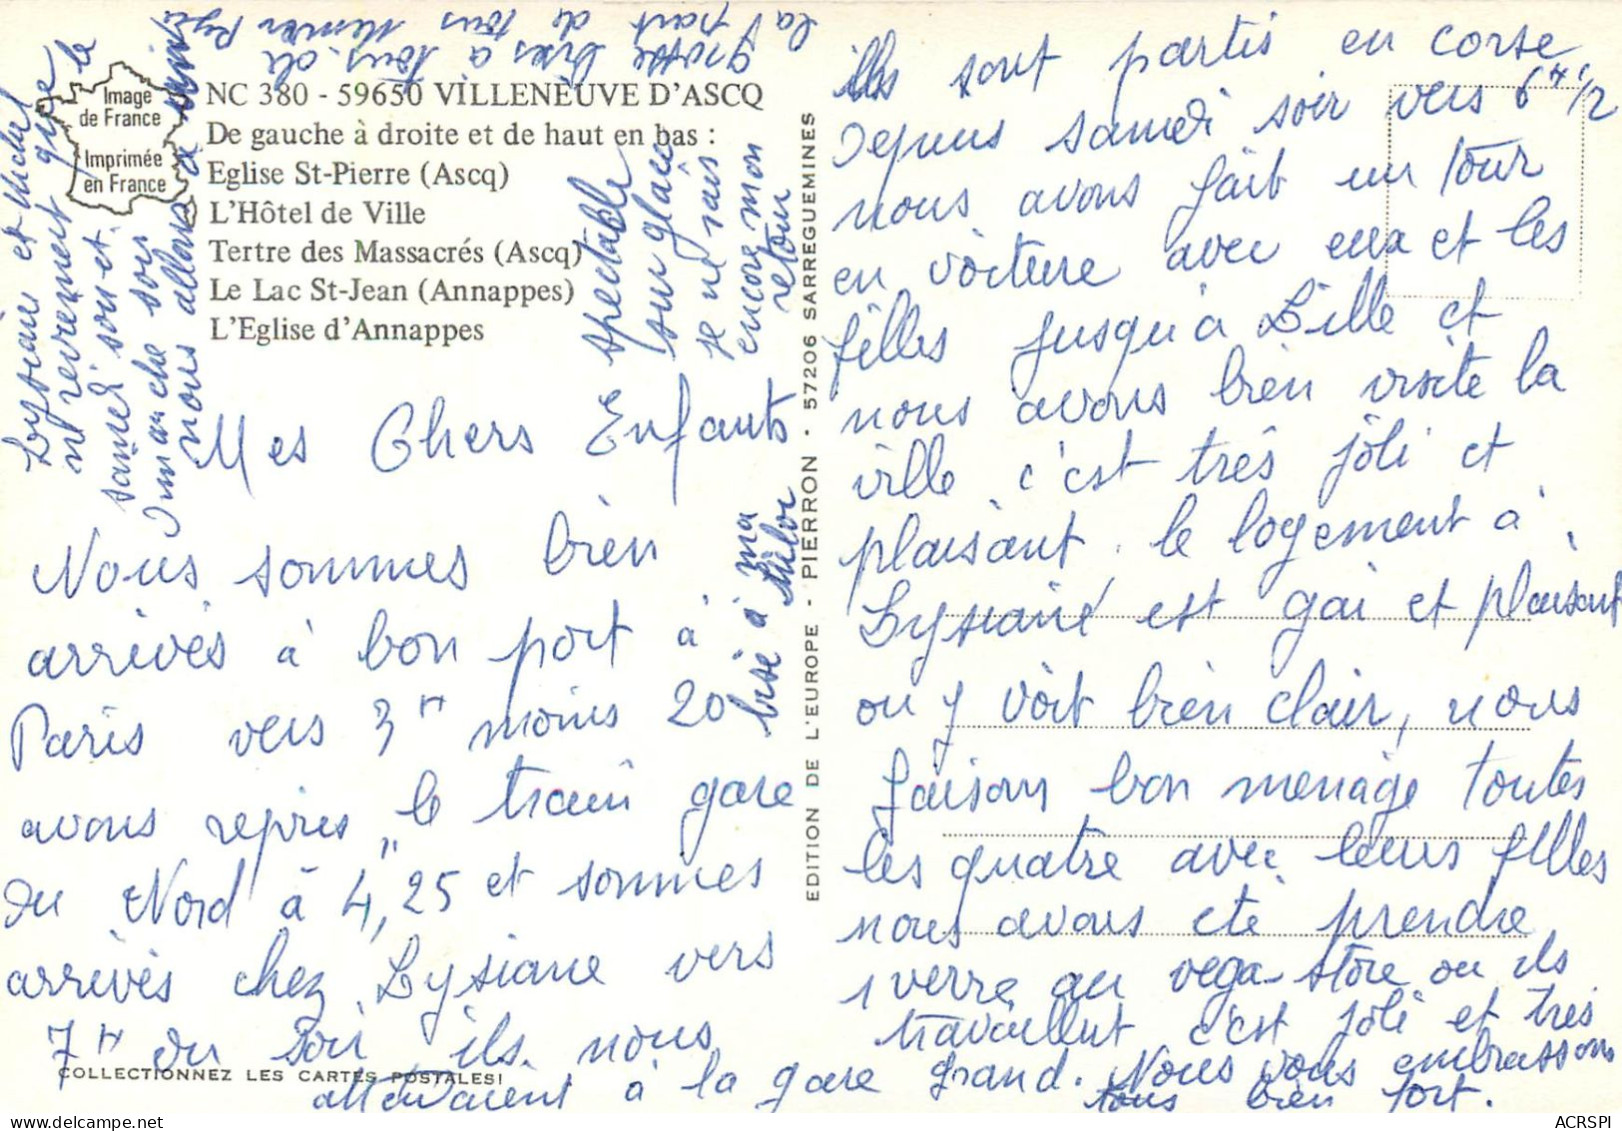 Image
de France
Imprimée
en France
NC 380 - 59650 VILLENEUVE D'ASCQ
De gauche à droite et de haut en bas :
Eglise St-Pierre (Ascq)
L'Hôtel de Ville
Tertre des Massacrés (Ascq)
Le Lac St-Jean (Annappes)
L'Eglise d'Annappes
Mes Chers Enfants
Nous sommes bien
arrivés à bon port à
Paris vers 3 H moins 20
avons repris le train gare
du Nord à 4,25 et sommes
arrivés chez Lysiane vers
7 H du soir ils nous
attendaient à la gare
ils sont partis en corse
depuis samedi soir vers 6 H 1/2
nous avons fait un tour
en voiture avec eux et les
filles jusqu'à Lille et
nous avons bien visité la
ville c'est très joli et
plaisant. le logement à
Lysiane est gai et plaisant
on y voit bien clair, nous
faisons bon menage toutes
les quatre avec leurs filles
nous avons eté prendre
1 verre au vega-store ou ils
travaillent c'est joli et très
grand. Nous vous embrassons
tous bien fort.
Lysiane et Michel
ni reviennent que le
samedi soir et
dimanche soir
nous allons a
spectable
sur glace
je ne sais
encore mon
retour
Grosse bises a tous
la part de tous
bise à ma
EDITION DE L'EUROPE - PIERRON - 57206 SARREGUEMINES
COLLECTIONNEZ LES CARTES POSTALES!
ACRSPI